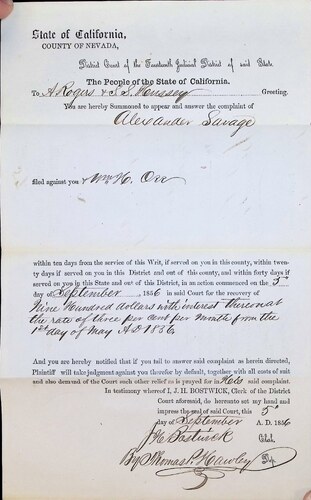 State of California,
COUNTY OF NEVADA,
District Court of the Fourteenth Judicial District of said State.
The People of the State of California.
To A Rogers & S. S. Hussey Greeting.
You are hereby Summoned to appear and answer the complaint of
Alexander Savage
filed against you & Wm H. Orr
within ten days from the service of this Writ, if served on you in this county, within twen-
ty days if served on you in this District and out of this county, and within forty days if
served on you in this State and out of this District, in an action commenced on the 5th
day of September , 1856 in said Court for the recovery of
Nine Hundred dollars with interest thereon at
the rate of three per cent per Month from the
1st day of May A.D 1856
And you are hereby notified that if you fail to answer said complaint as herein directed,
Plaintiff will take judgment against you therefor by default, together with all costs of suit
and also demand of the Court such other relief as is prayed for in said complaint.
In testimony whereof I, J. H. BOSTWICK, Clerk of the District
Court aforesaid, do hereunto set my hand and
impress the seal of said Court, this 5th
day of September A. D. 1856
J H Bostwick Clerk,
By Thomas P. Hawley Dp.